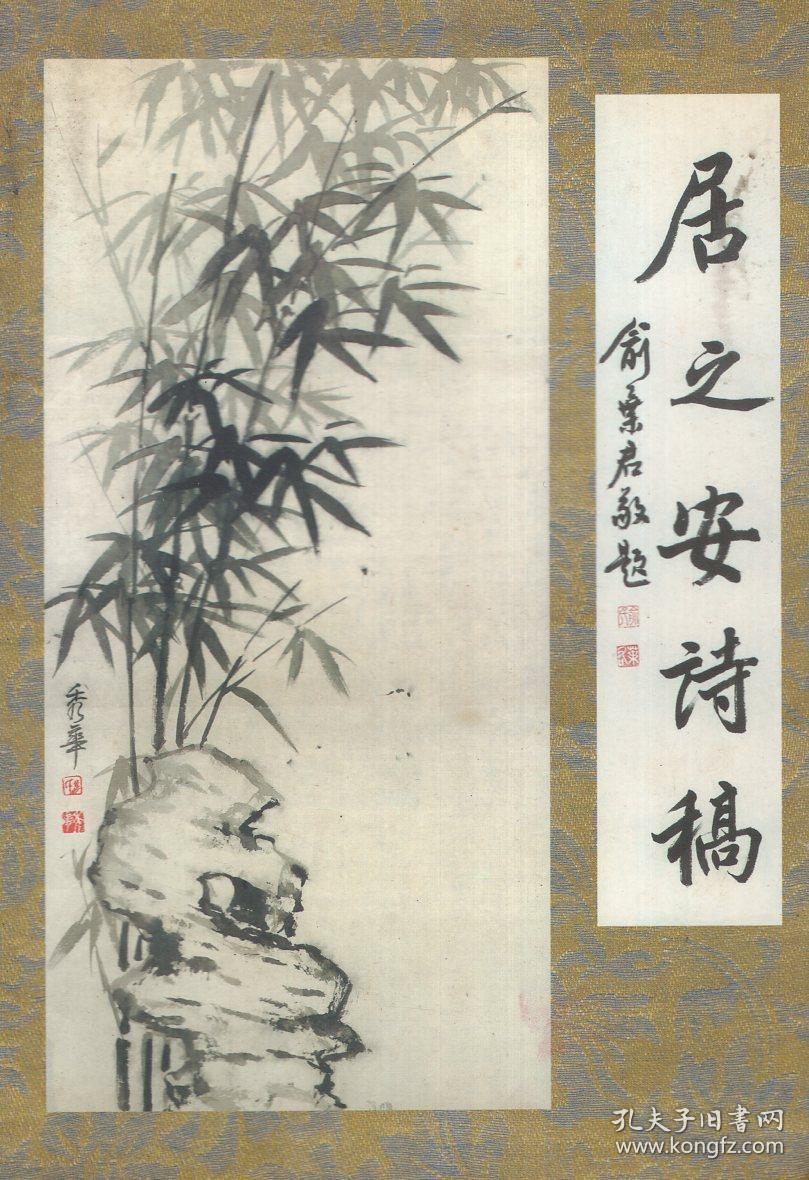 居之安詩稿
俞棻君敬題
秀華
孔夫子旧書网
www.kongfz.com